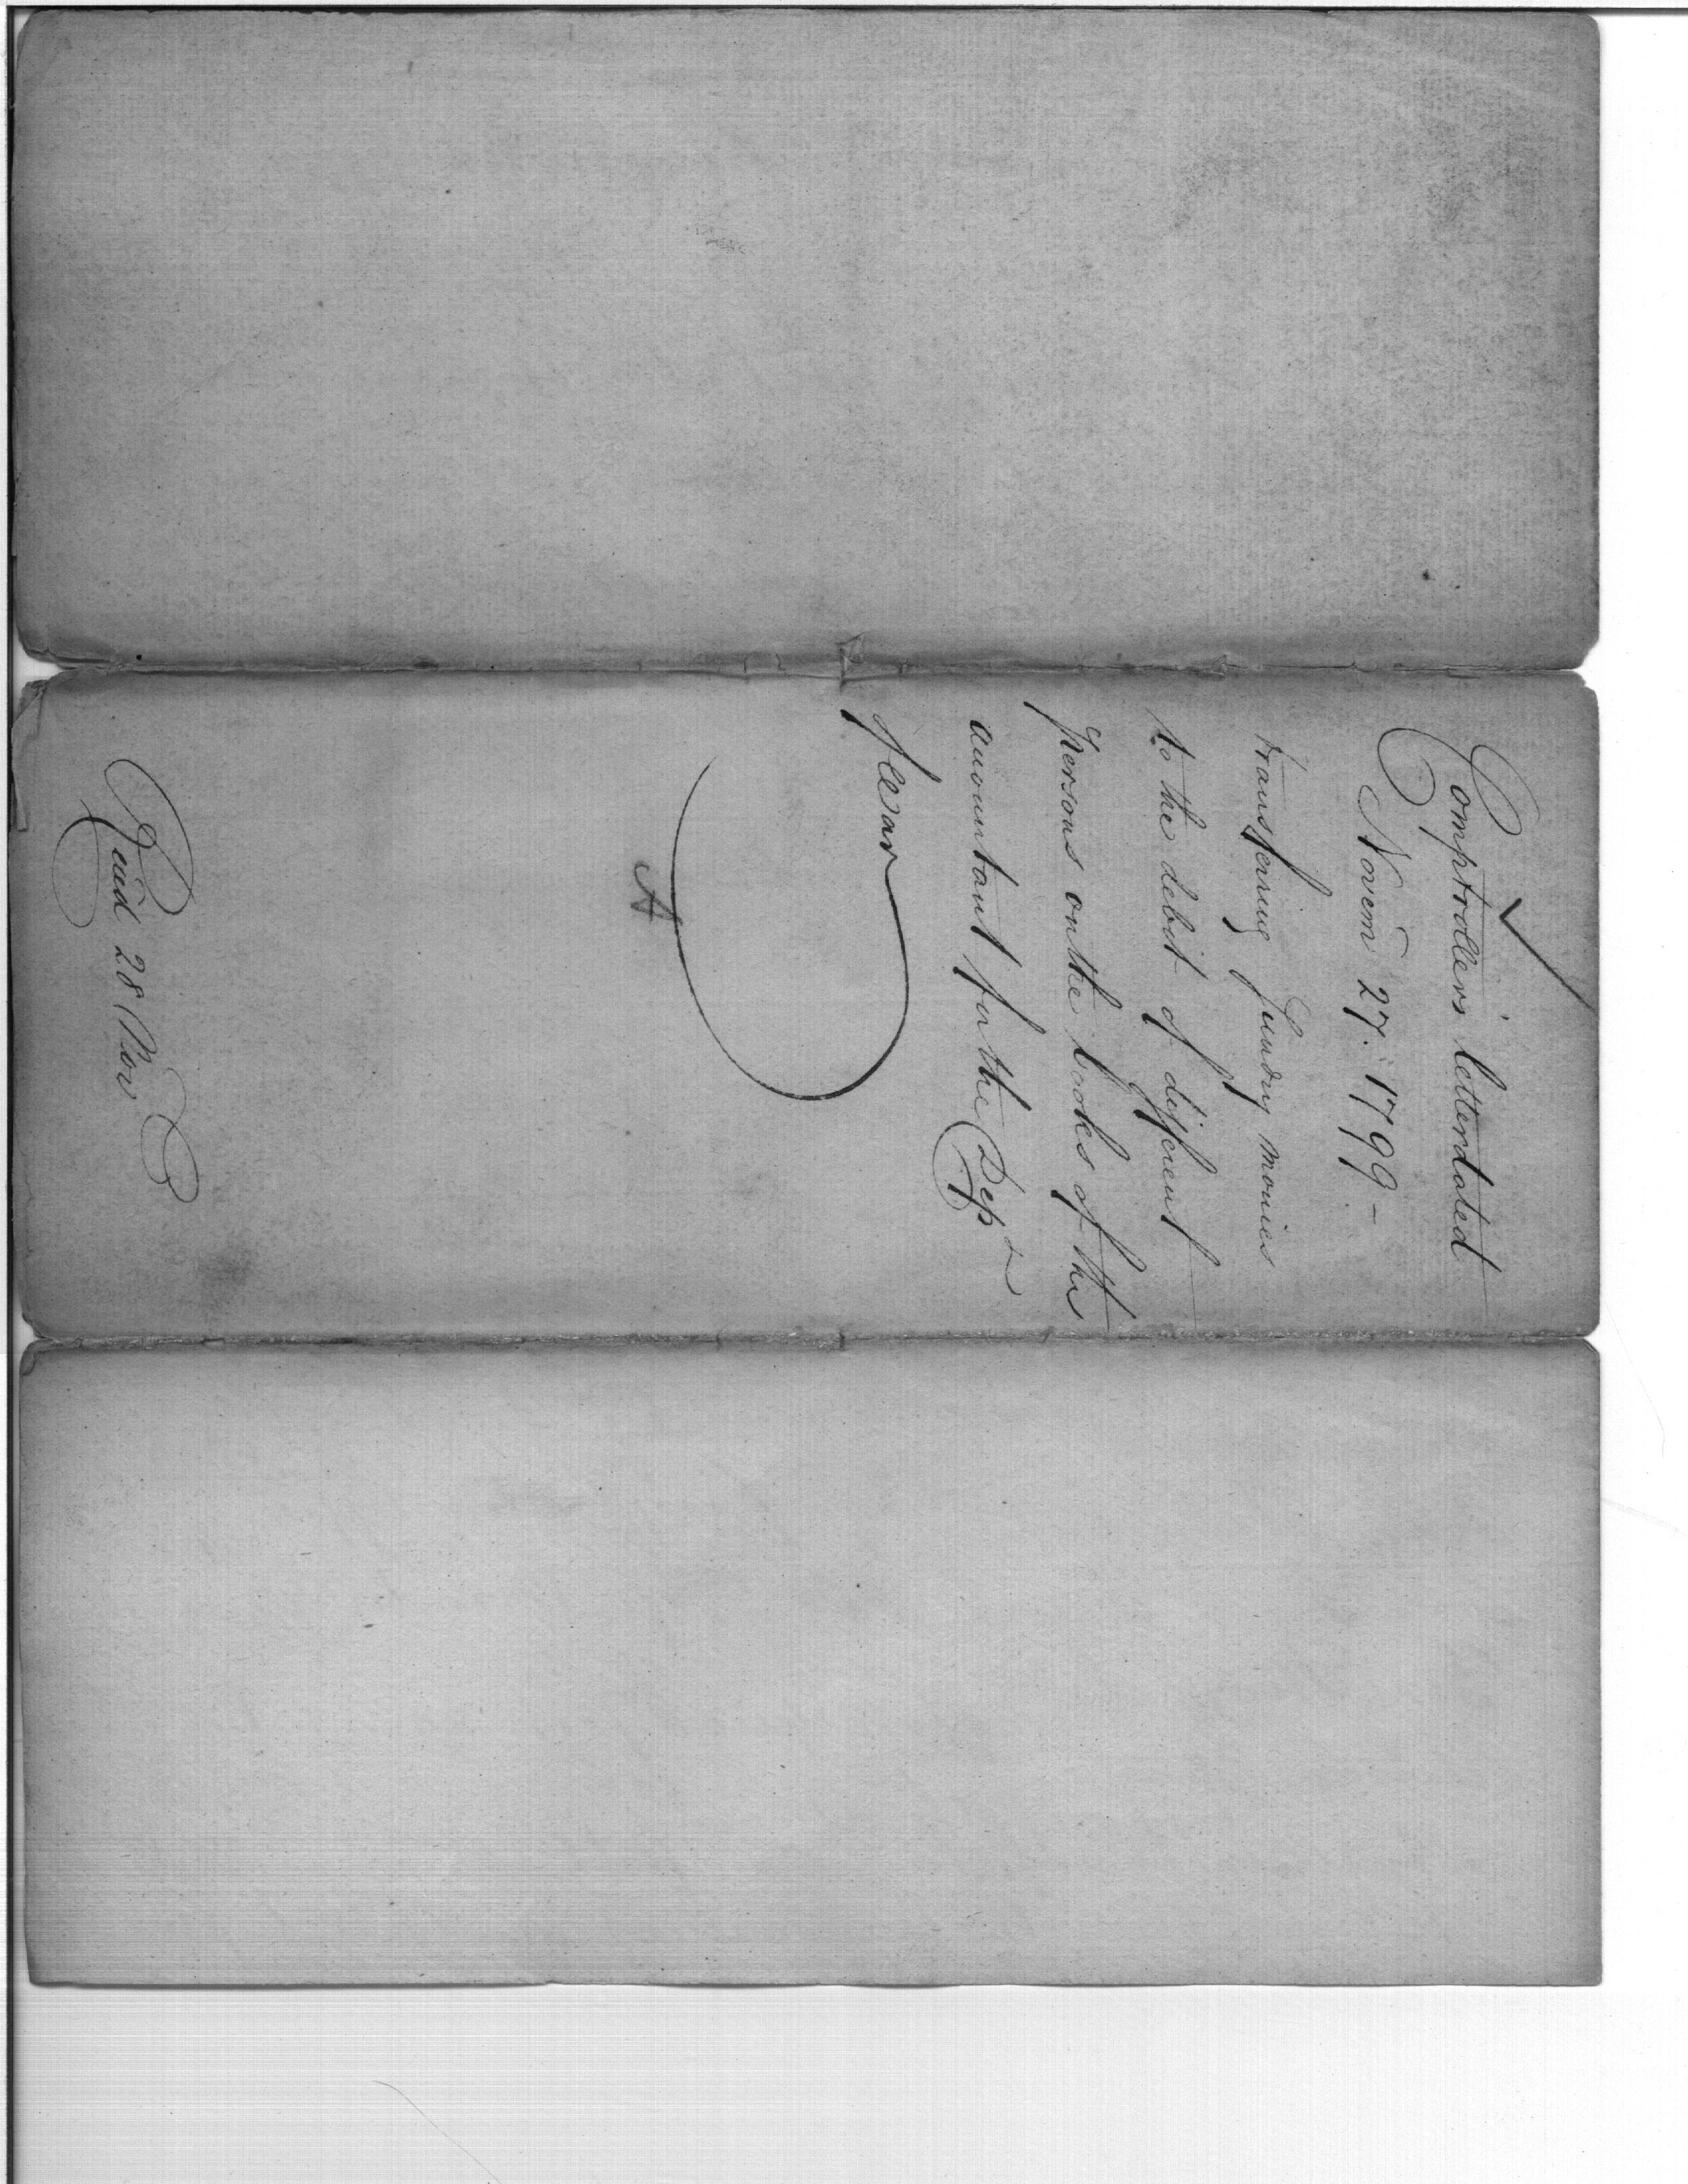 Comptrollers letter dated
Novem 27. 1799 -
transferring sundry monies
to the debit of different
persons on the books of the
accountant for the Dept
of War
A
Recd 28 Nov